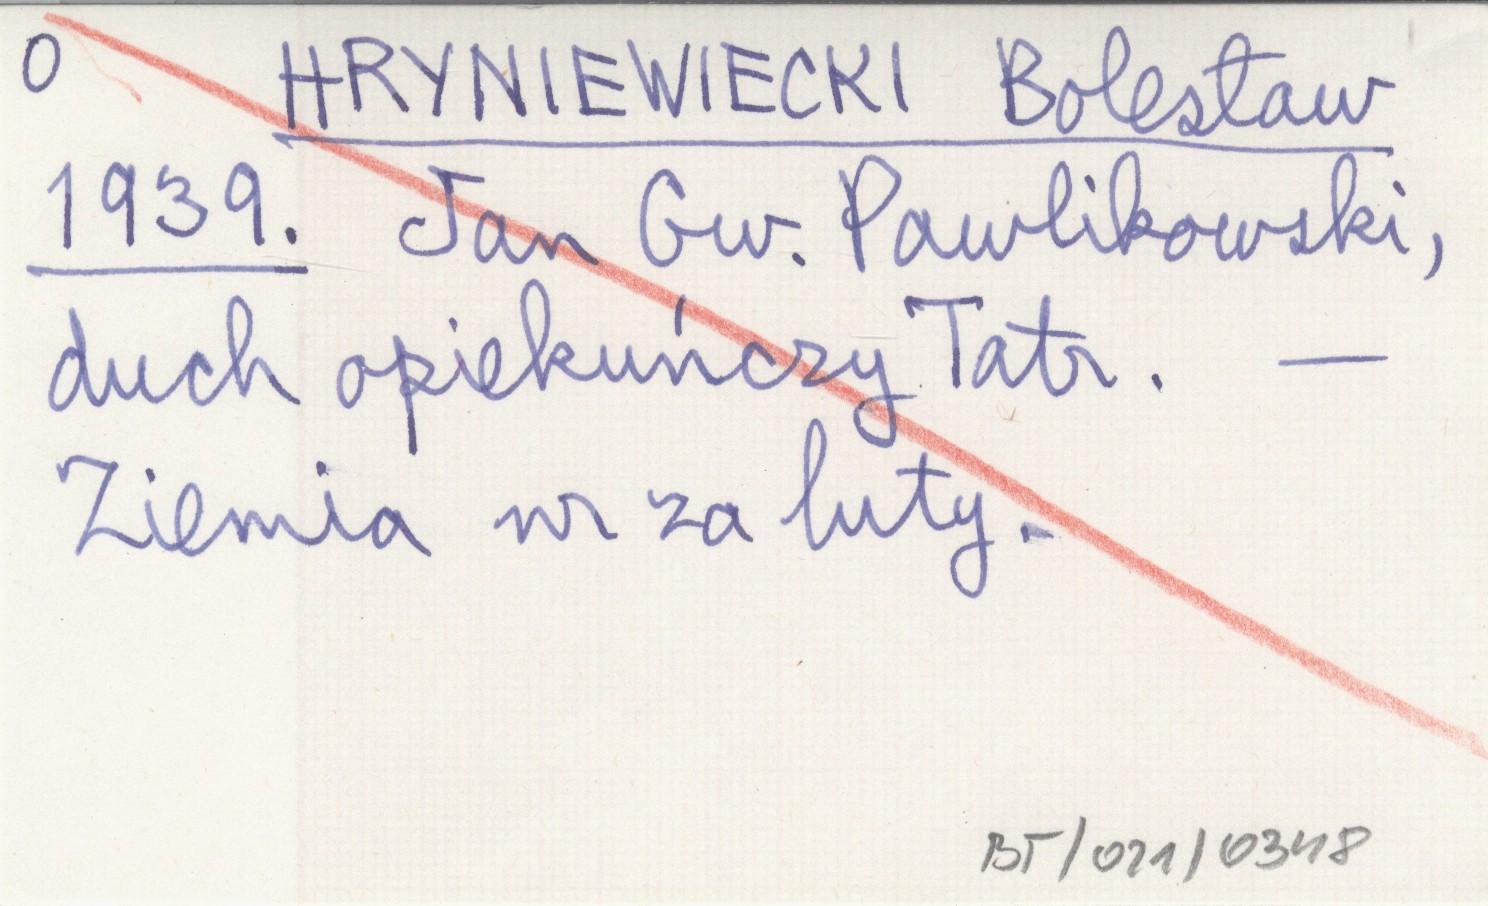 O HRYNIEWIECKI Bolesław
1939. Jan Gw. Pawlikowski,
duch opiekuńczy Tatr. —
Ziemia nr za luty.
BT/021/0348